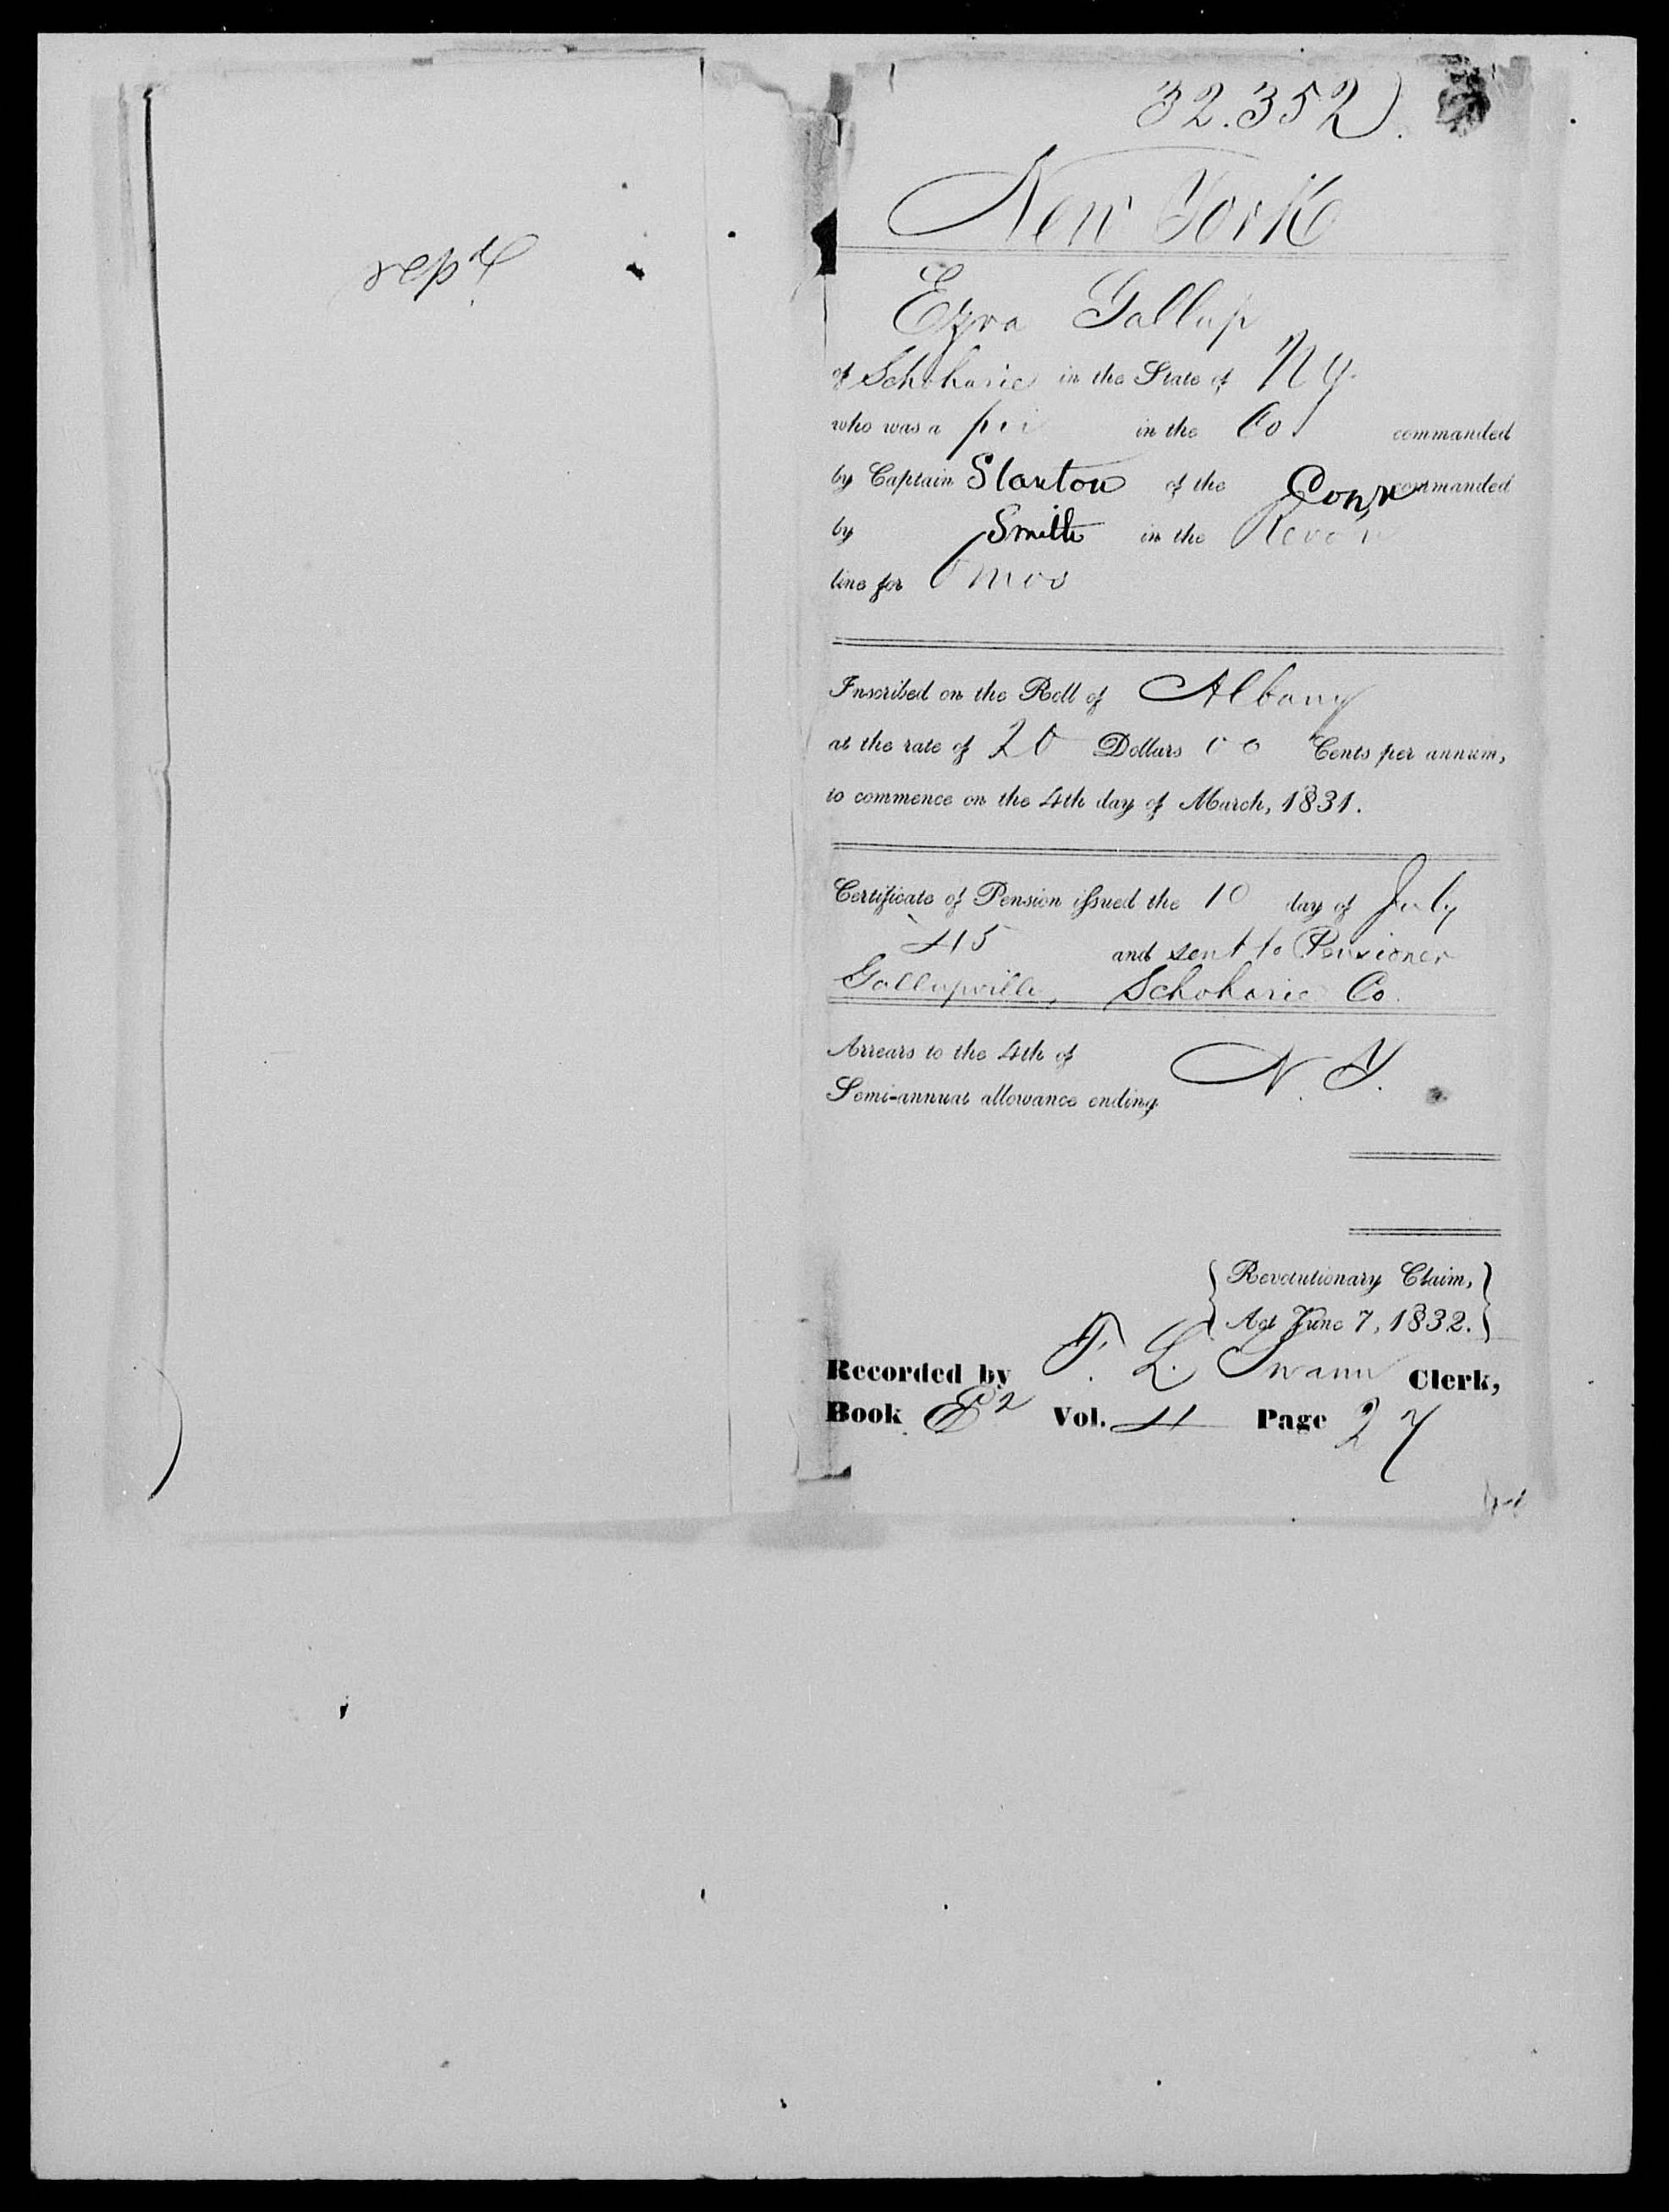 rep'd
32.352
New York
Ezra Gallup
of Schoharie in the State of N Y.
who was a pri in the Co commanded
by Captain Stanton of the Conn commanded
by Smith in the Revo
line for 6 mos
Inscribed on the Roll of Albany
at the rate of 20 Dollars 00 Cents per annum,
to commence on the 4th day of March, 1831.
Certificate of Pension issued the 10 day of July
'45 and sent to Pensioner
Gallupville, Schoharie Co.
Arrears to the 4th of
Semi-annual allowance ending
N. Y.
Revolutionary Claim,
Act June 7, 1832.
Recorded by T. L. Swann Clerk,
Book E2 Vol. 4 Page 27